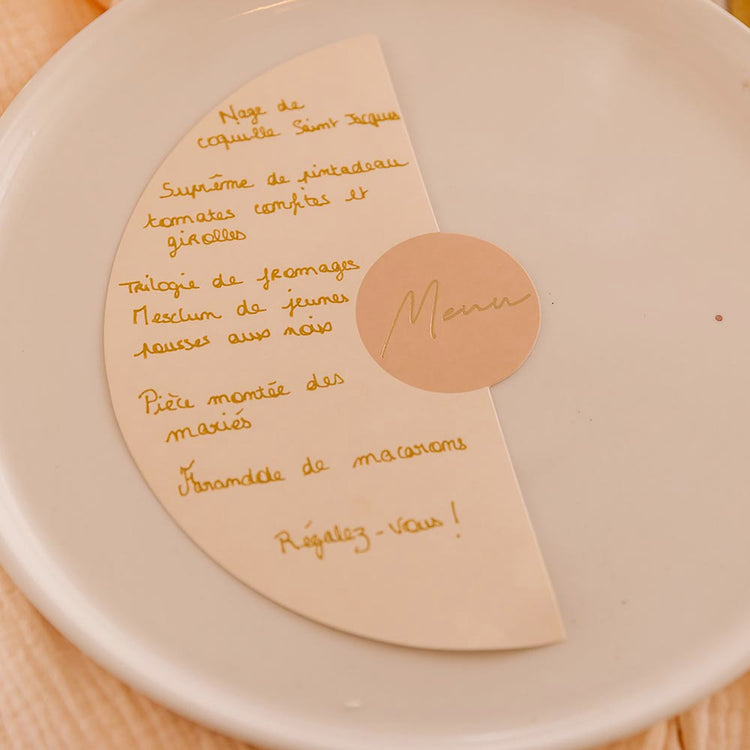 Nage de
coquille Saint Jacques
Suprême de pintadeau
tomates confites et
girolles
Trilogie de fromages
Mesclun de jeunes
pousses aux noix
Menu
Pièce montée des
mariés
Farandole de macarons
Régalez-vous !